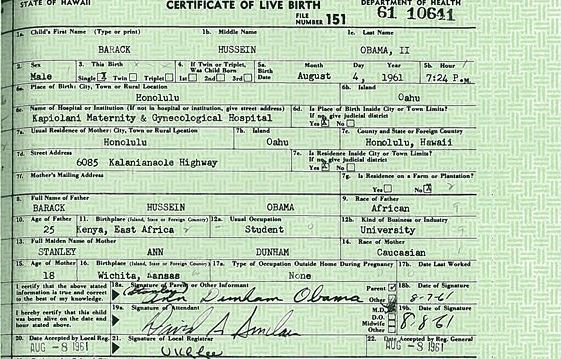 STATE OF HAWAII CERTIFICATE OF LIVE BIRTH DEPARTMENT OF HEALTH
FILE NUMBER 151 61 10641
1a. Child's First Name (Type or print) 1b. Middle Name 1c. Last Name
BARACK HUSSEIN OBAMA, II
2. Sex 3. This Birth 4. If Twin or Triplet, Was Child Born 5a. Birth Date Month Day Year 5b. Hour
Male Single X Twin Triplet 1st 2nd 3rd August 4, 1961 7:24 P.M.
6a. Place of Birth: City, Town or Rural Location 6b. Island
Honolulu Oahu
6c. Name of Hospital or Institution (If not in hospital or institution, give street address) 6d. Is Place of Birth Inside City or Town Limits? If no give judicial district
Kapiolani Maternity & Gynecological Hospital Yes X No
7a. Usual Residence of Mother: City, Town or Rural Location 7b. Island 7c. County and State or Foreign Country
Honolulu Oahu Honolulu, Hawaii
7d. Street Address 7e. Is Residence Inside City or Town Limits? If no give judicial district
6085 Kalanianaole Highway Yes X No
7f. Mother's Mailing Address 7g. Is Residence on a Farm or Plantation?
Yes No X
8. Full Name of Father 9. Race of Father
BARACK HUSSEIN OBAMA African 9
10. Age of Father 11. Birthplace (Island, State or Foreign Country) 12a. Usual Occupation 12b. Kind of Business or Industry
25 Kenya, East Africa Student 9 University 9
13. Full Maiden Name of Mother 14. Race of Mother
STANLEY ANN DUNHAM Caucasian 1
15. Age of Mother 16. Birthplace (Island, State or Foreign Country) 17a. Type of Occupation Outside Home During Pregnancy 17b. Date Last Worked
18 Wichita, Kansas None
I certify that the above stated information is true and correct to the best of my knowledge. 18a. Signature of Parent or Other Informant Parent Other 18b. Date of Signature
(Stanley) Ann Dunham Obama 8-7-61
I hereby certify that this child was born alive on the date and hour stated above. 19a. Signature of Attendant M.D. D.O. Midwife Other 19b. Date of Signature
David A Sinclair 8-8-61
20. Date Accepted by Local Reg. 21. Signature of Local Registrar 22. Date Accepted by Reg. General
AUG -8 1961 AUG -8 1961